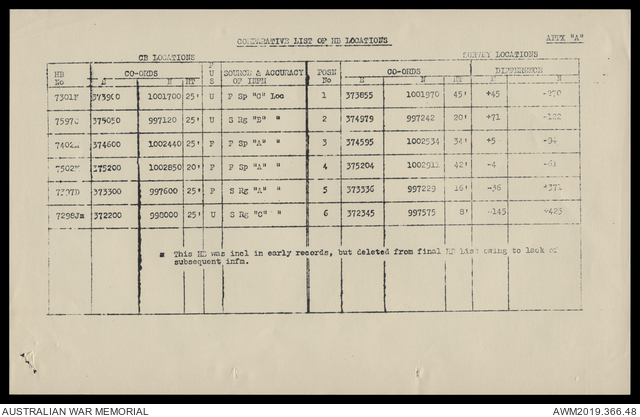 COMPARATIVE LIST OF HB LOCATIONS APPX "A"
CB LOCATIONS SURVEY LOCATIONS
HB No CO-ORDS F U S SOURCE & ACCURACY OF INFN POSN No CO-ORDS DIFFERENCE
E N HT E N HT E N
7301F 373900 1001700 25' U F Sp "C" Loc 1 373855 1001970 45' +45 -270
7597G 375050 997120 25' U S Rg "B" " 2 374979 997242 20' +71 -122
374600 1002440 25' F F Sp "A" " 3 374595 1002534 34' +5 -94
375200 1002850 20' F F Sp "A" " 4 375204 42' -4 -61
7307D 373300 997600 25' F S Rg "A" " 5 373336 997229 16' -36 +371
7298J 372200 998000 25' U S Rg "C" " 6 372345 997575 8' -145 +425
This HB was incl in early records, but deleted from final HB List owing to lack of
subsequent infm.
AUSTRALIAN WAR MEMORIAL AWM2019.366.48